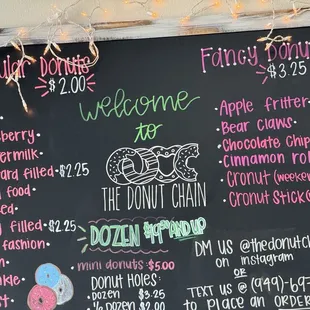 Donuts
$2.00
rmilk
filled $2.25
food
filled $2.25
fashion
welcome
to
THE DONUT CHAIN
DOZEN AND UP
mini donuts $5.00
Donut Holes:
Dozen $3.25
½ Dozen $2.00
Fancy Donu
$3.25
Apple fritter
Bear claws
Chocolate Chip
Cinnamon rol
Cronut (week
Cronut Stick
DM US @thedonutc
on instagram
OR
TEXT US @ (949)
to place an ORDER